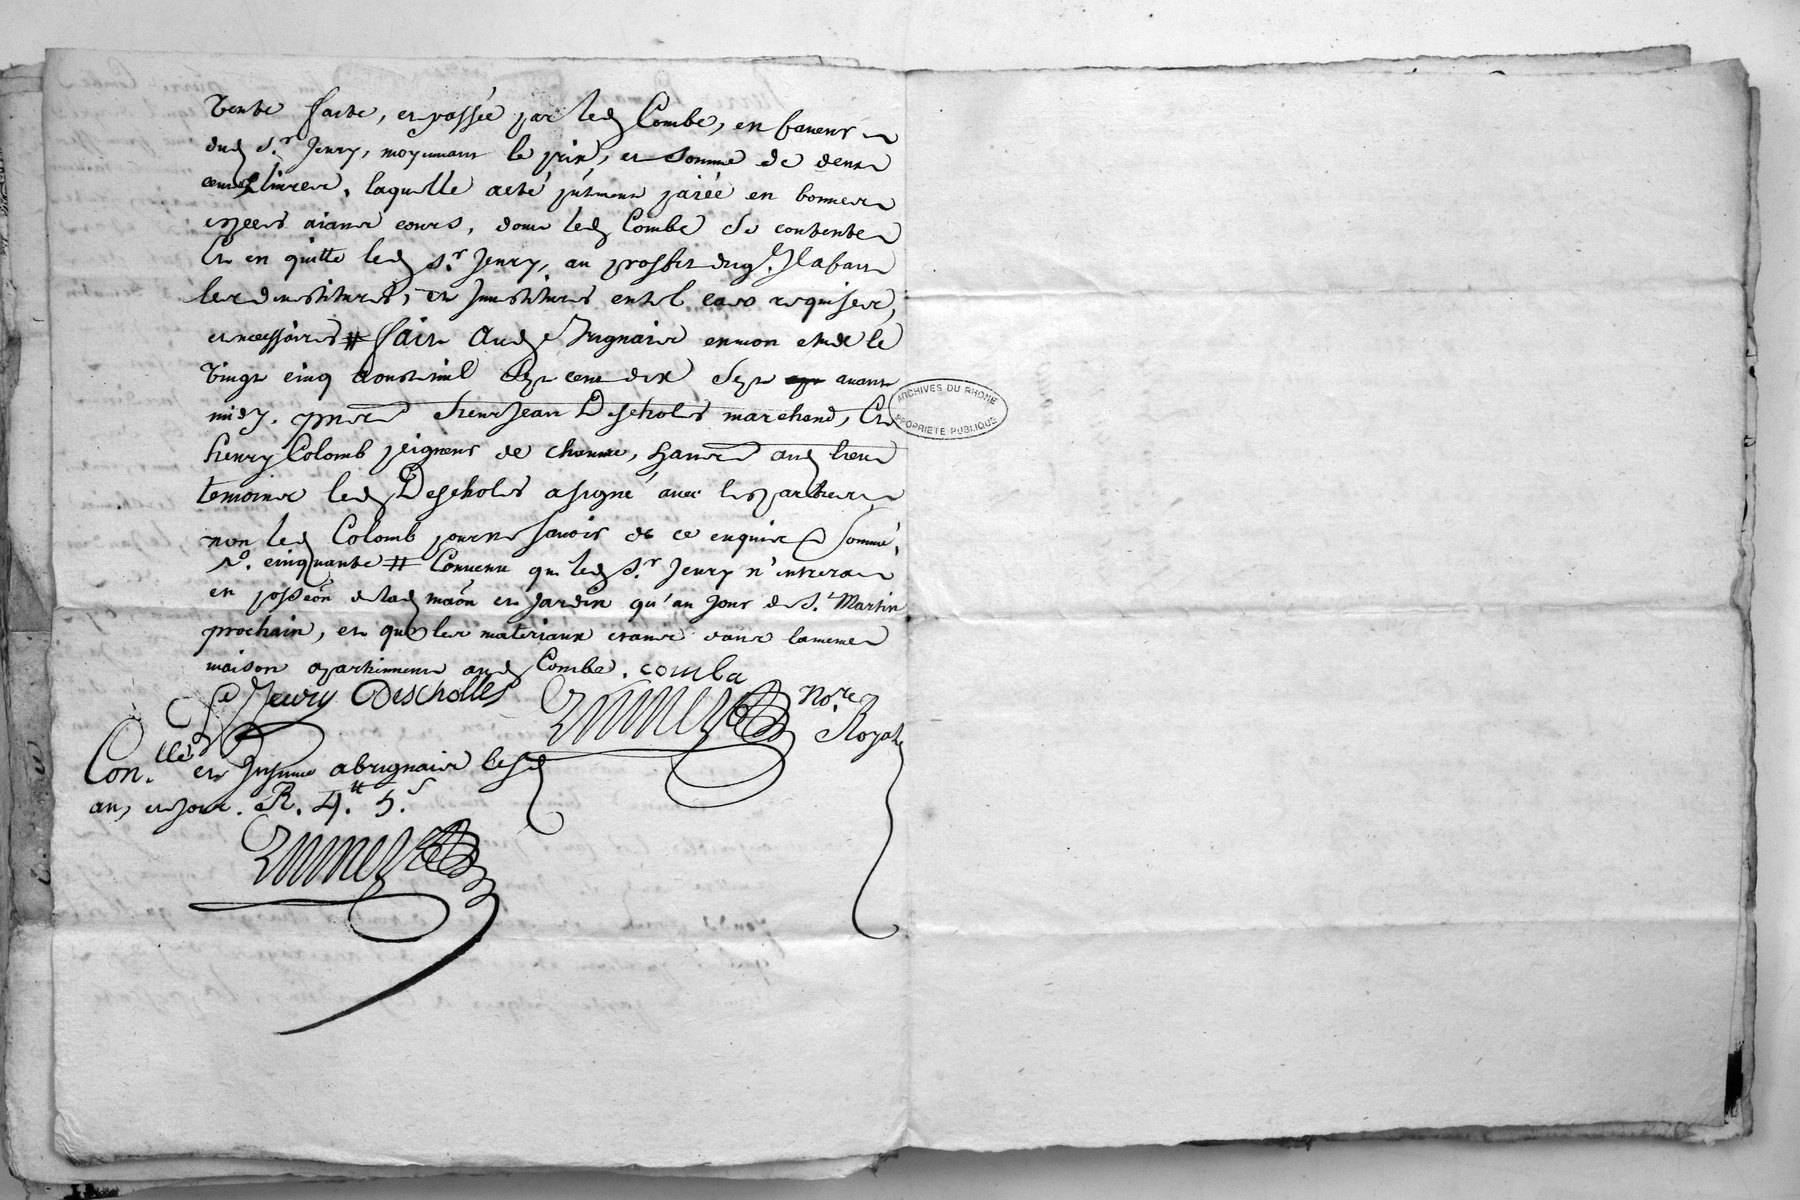 vente faite, et passée par led Combe, en faveur
dud s.r Jeury, moyenant le prix, et somme de deux
cens livres, laquelle a eté pñtment païée en bonnes
espees aiant cours, dont led Combe se contente
Et en quitte led s.r Jeury, au proffit duq.l Il a fait
les devestitures, et Investitures en tel cas requises,
et necessaires # fait Aud Brignais en mon etude le
vingt cinq aoust mil sept cent dix sept avant
midy. pñts sieur Jean Descholes marchand, Et
henry Colomb peigneur de chanvre, hãnts aud lieu
temoins led Descholes a signé avec les parties
non led Colomb pour ne savoir de ce enquis et sommé,
v.o cinquante # Convenu que led s.r Jeury n'entrera
en possõn de lad maõn et Jardin qu'au Jour de S.t Martin
prochain, et que les materiaux etant dans la meme
maison apartiennent aud Combe. comba
Jeury Descholles
Nore.
Royal
Con.llé et Insinué a brignais lesd
an, et jour. R. 4.tt 5.s
ARCHIVES DU RHONE
PROPRIETE PUBLIQUE